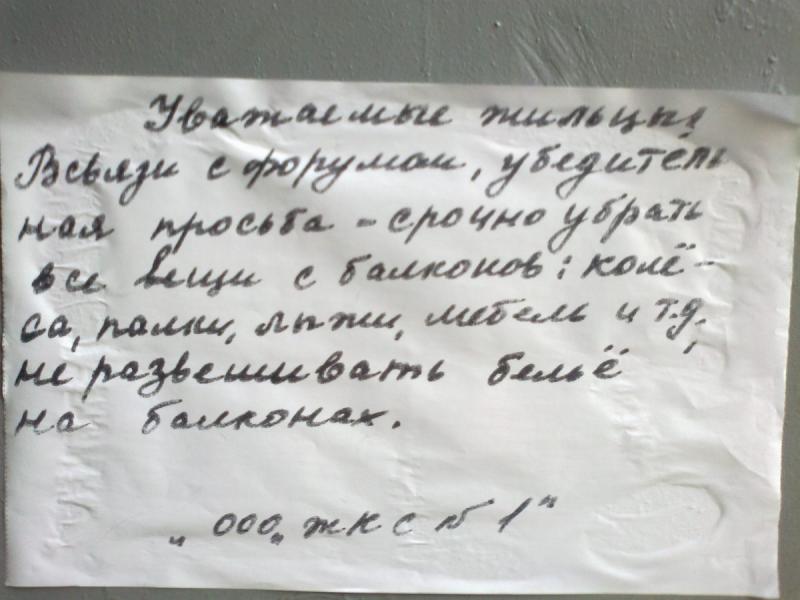 Уважаемые жильцы!
Всвязи с форумом, убедитель
ная просьба - срочно убрать
все вещи с балконов: колё-
са, палки, лыжи, мебель и т.д.,
не развешивать бельё
на балконах.
„ООО „ЖКС №1"